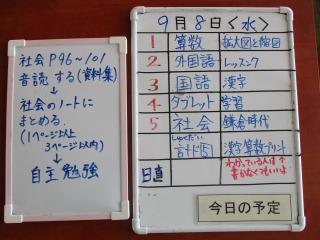 社会 P96〜101
音読する(資料集)
↓
社会のノートに
まとめる.
(1ページ以上
3ページ以内)
↓
自主勉強
9月8日<水>
1 算数 拡大図と縮図
2 外国語 レッスン7
3 国語 漢字
4 タブレット 学習
5 社会 鎌倉時代
しゅくだい
計ド 5 漢字算数プリント
日直 わかっている人は
書かなくてもいいよ
今日の予定